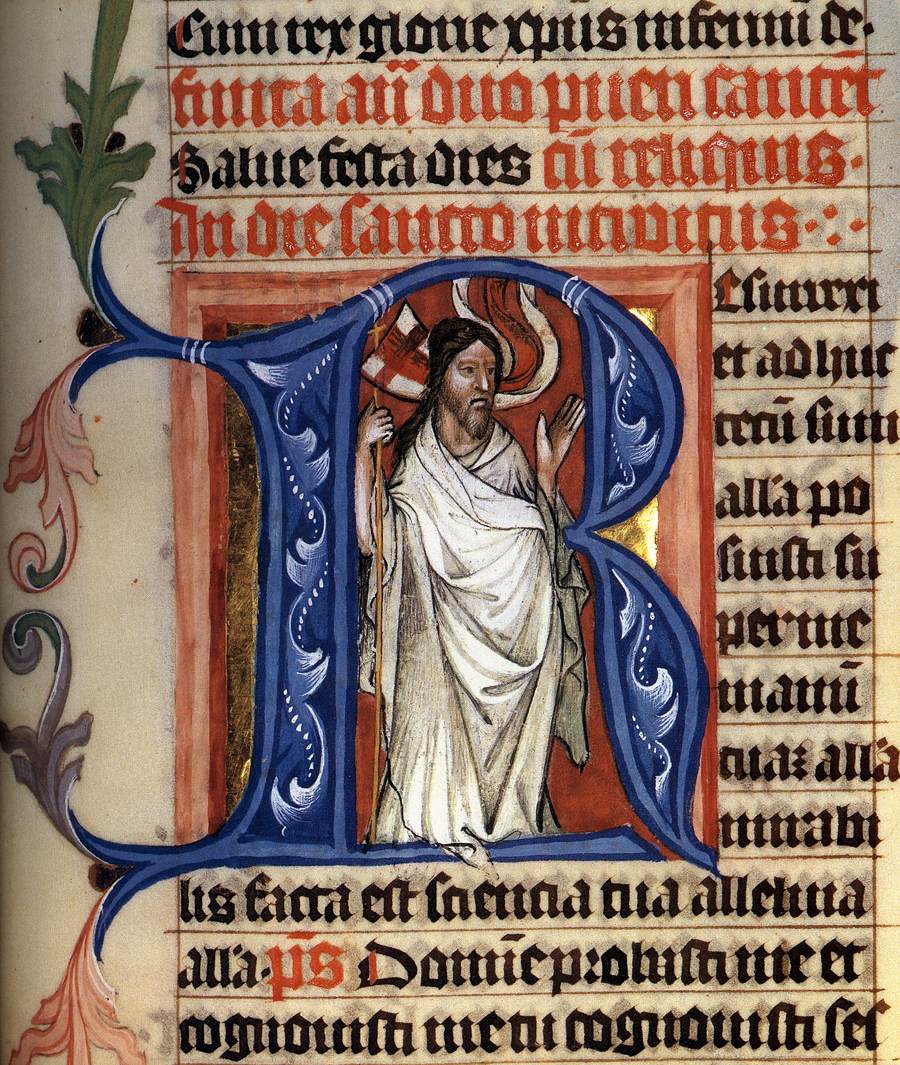 Cum rex glorie xpūs infernū de-
functa añ duo pueri cantēt
Salue festa dies cū reliquis.
In die sancto introitus.:.
Resurrexi
et adhuc
tecū sum
alla po
suisti su
per me
manū
tuaꝫ alla
mirabi
lis facta est sciencia tua alleluia
alla. p̄s Domīe probasti me et
cognouisti me tu cognouisti ses